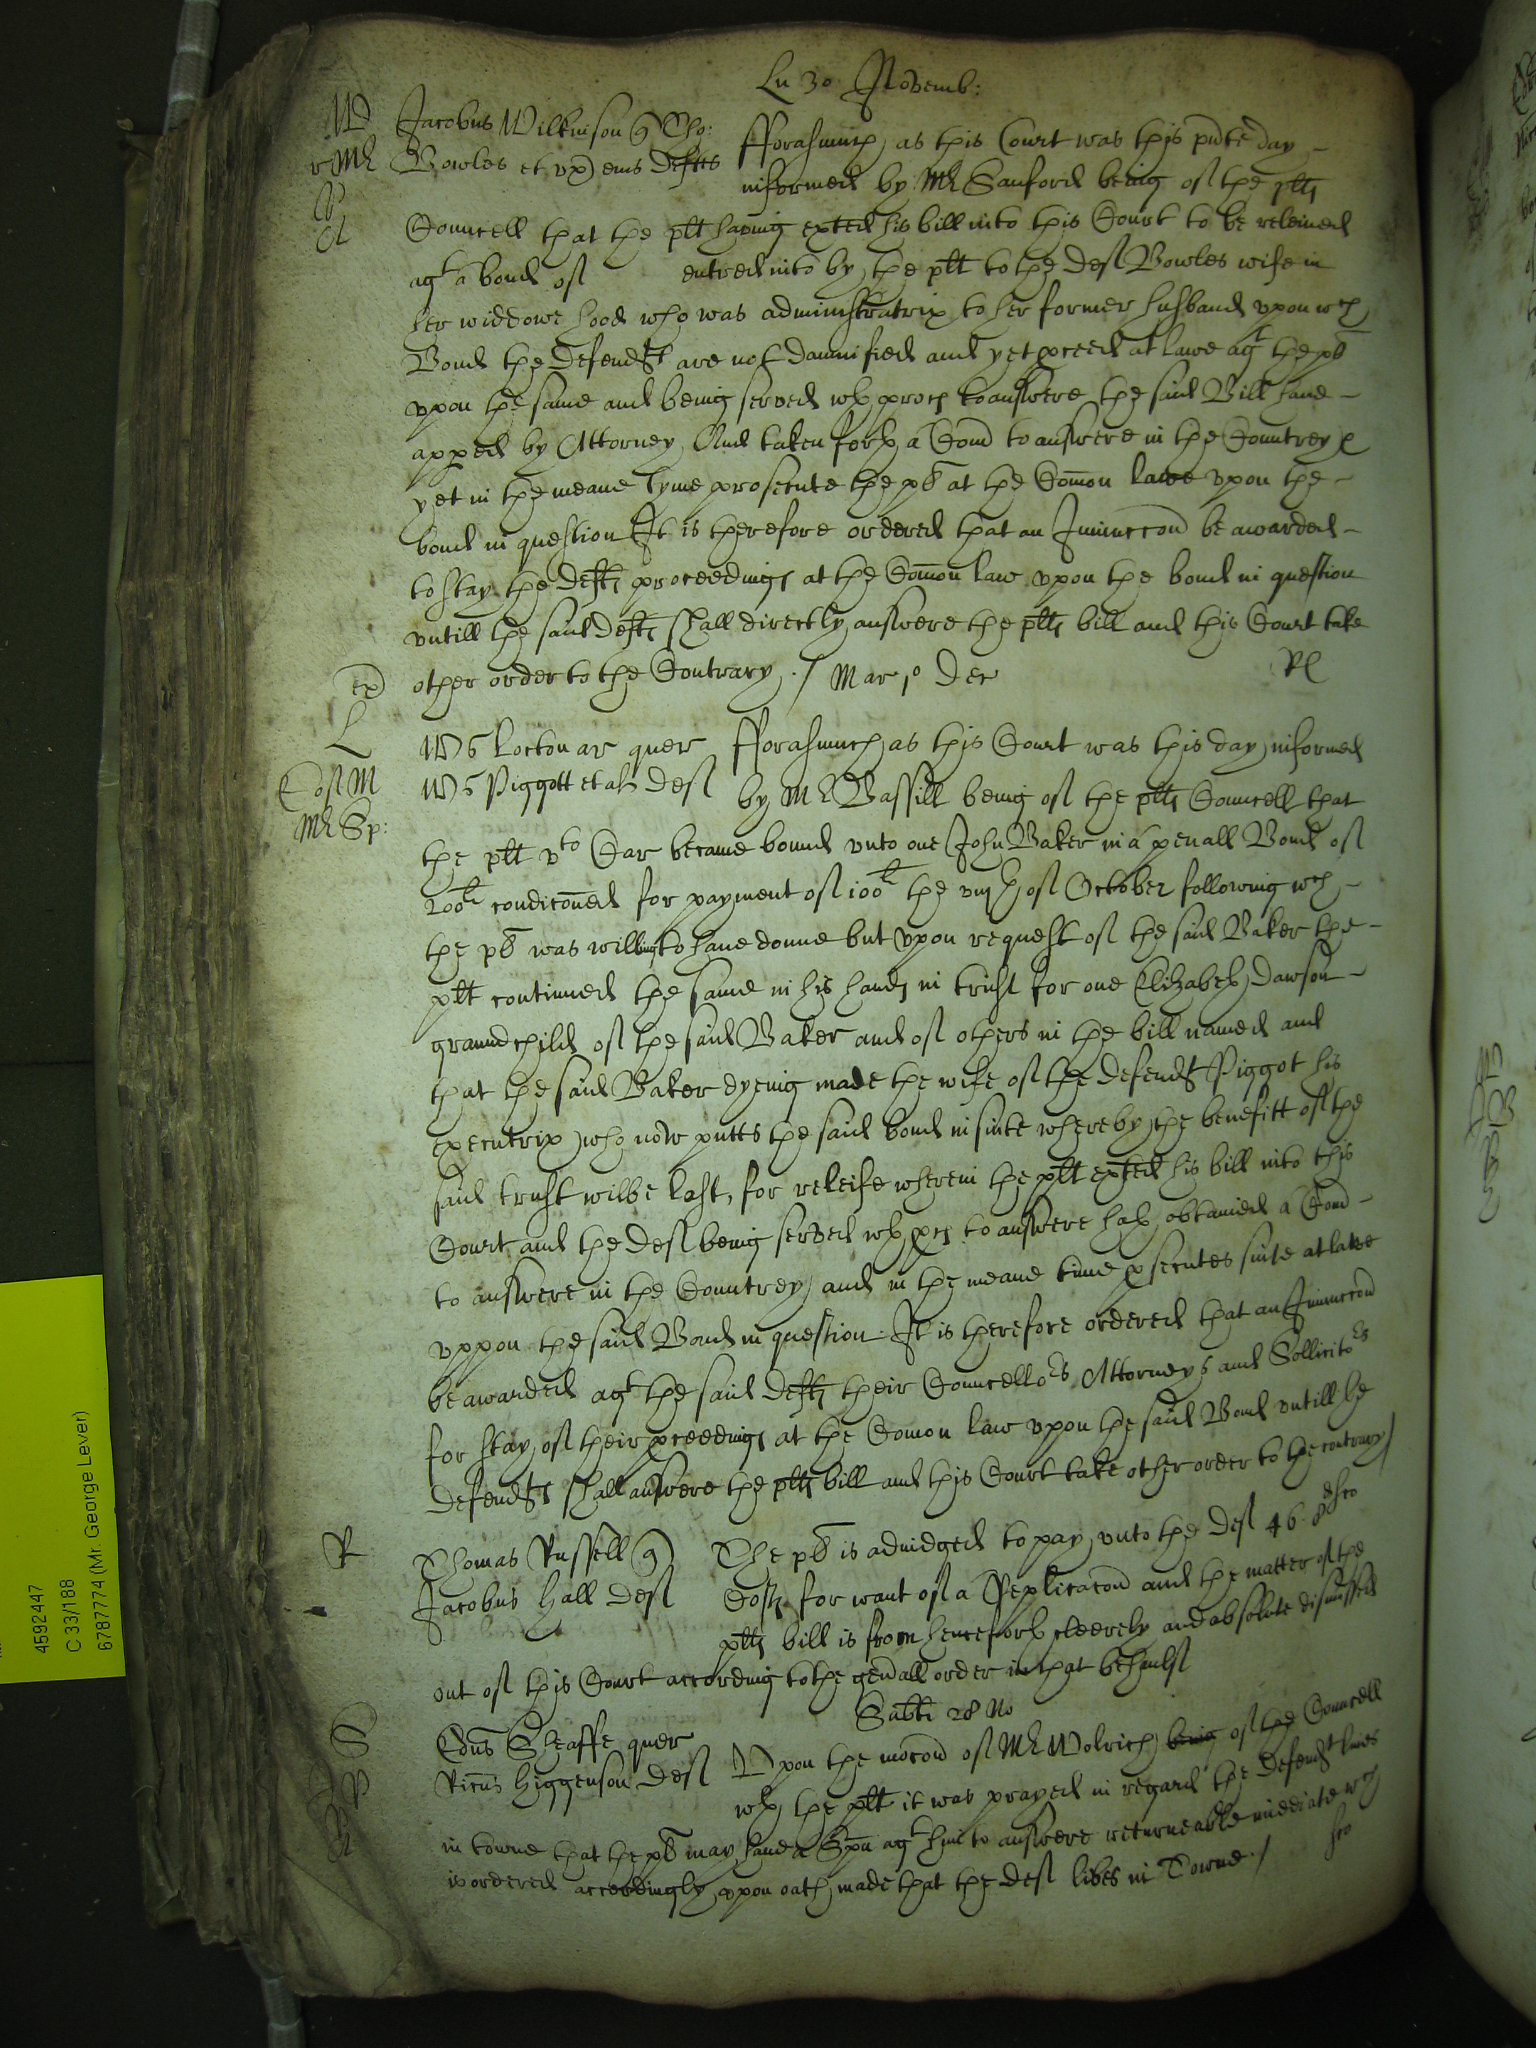 Lu 30 Novemb:
Jacobus Wilkinson q Tho:
Bowles et ux eius defts
fforasmuch as this Court was this pnte day
informed by Mr Sanford being of the plts
Councell that the plt having exhited his bill into this Court to be releived
agt a bond of entred into by the plt to the def Bowles wife in
her widdowe hood who was administratrix to her former husband upon wch
Bond the defendts are not damnified and yet pceed at lawe agt the pl
upon the same and being served wth proces to answere the said Bill have
appeed by Attorney And taken forth a Comd to answere in the Countrey &
yet in the meane tyme prosecute the pl at the Comon lawe upon the
bond in question It is therefore ordered that an Iniunccond be awarded
to stay the defts proceedings at the Comon law upon the bond in question
untill the said defts shall directly answere the plts bill and this Court take
ex other order to the Contrary ./ Mar 1o Dec Rl
L
Wm Lockton ar quer
Wm Piggott et als def
fforasmuch as this Court was this day informed
by Mr Vassill being of the plts Councell that
the plt vto Car became bound unto one John Baker in a penall Bond of
200li condiconed for payment of 100li the viijth of October following wch
the pl was willing to have donne but upon request of the said Baker the
plt continued the same in his hands in trust for one Elizabeth Dawson
graundchild of the said Baker and of others in the bill named and
that the said Baker dyeing made the wife of the defendt Piggot his
executrix who now putts the said bond in suite whereby the benefitt of the
said trust wilbe lost, for releife wherein the plt exhited his bill into this
Court and the def being served wth pces to answere hath obtained a Comd
to answere in the Countrey and in the meane time psecutes suite at lawe
uppon the said Bond in question. It is therefore ordered that an Iniunccond
be awarded agt the said defts their Councellors Attorneys and Sollicitors
for stay of their pceedings at the Comon law upon the said Bond untill the
defendts shall answere the plts bill and this Court take other order to the contrary /
R
Thomas Russell q
Jacobus Hall def
The pl is adiudged to pay unto the def 46s 8d
Costs for want of a Replicacond and the matter of the
plts bill is from henceforth cleerely and absolute dismissed
out of this Court according to the genall order in that behaulf
Sabti 28 No
S
Edus Sheaffe quer
Ricus Higgenson def
Upon the mocond of Mr Wolrich being of the Councell
wth the plt it was prayed in regard the defendt lives
in towne that the pl may have a Spn agt him to answere returneable imediate wch
is ordered accordingly, upon oath made that the def lives in Towne ./
4592447
C 33/188
6787774 (Mr. George Lever)